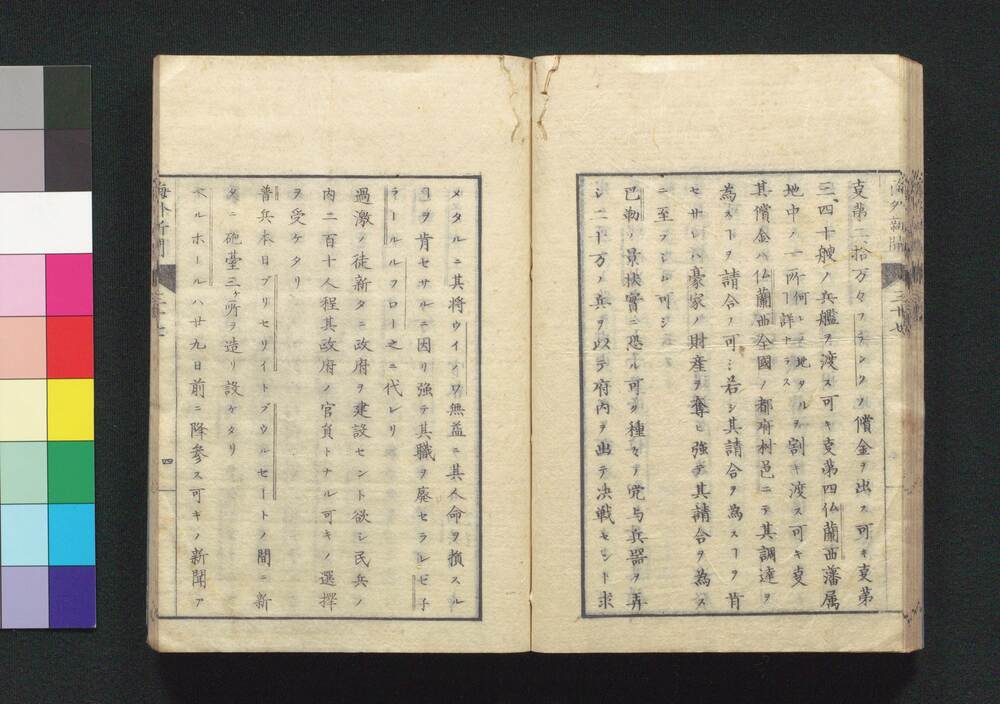 支第二拾万々フランクノ償金ヲ出ス可キ支第
三四十艘ノ兵艦ヲ渡ス可キ支第四仏蘭西藩属
地中ノ一所何レノ地タルヲ詳ナラス割キ渡ス可キ支
其償金ハ仏蘭西全国ノ都府村邑ニテ其調達ヲ
為スヿヲ請合フ可シ若シ其請合ヲ為スヿヲ肯
セサレハ豪家ノ財産ヲ奪ヒ強テ其請合ヲ為ス
ニ至ラシム可シ
巴勒ノ景状實ニ恐ル可ク種々ノ党与兵器ヲ弄
シ二十万ノ兵ヲ以テ府内ヲ出テ決戦セント求
メタルニ其将ウイノワ無益ニ其人命ヲ損スル
ヿヲ肯セサルニ因リ強テ其職ヲ廃セラレゼ子
ラールルフロー之ニ代レリ
過激ノ徒新タニ政府ヲ建設セント欲シ民兵ノ
内二百十人程其政府ノ官貟トナル可キノ選擇
ヲ受ケタリ
普兵本日ブリセリイトブウルセートノ間ニ新
タニ砲臺三ヶ所ヲ造リ設ケタリ
ベルホールハ廿九日前ニ降参ス可キノ新聞ア
海外新聞
四